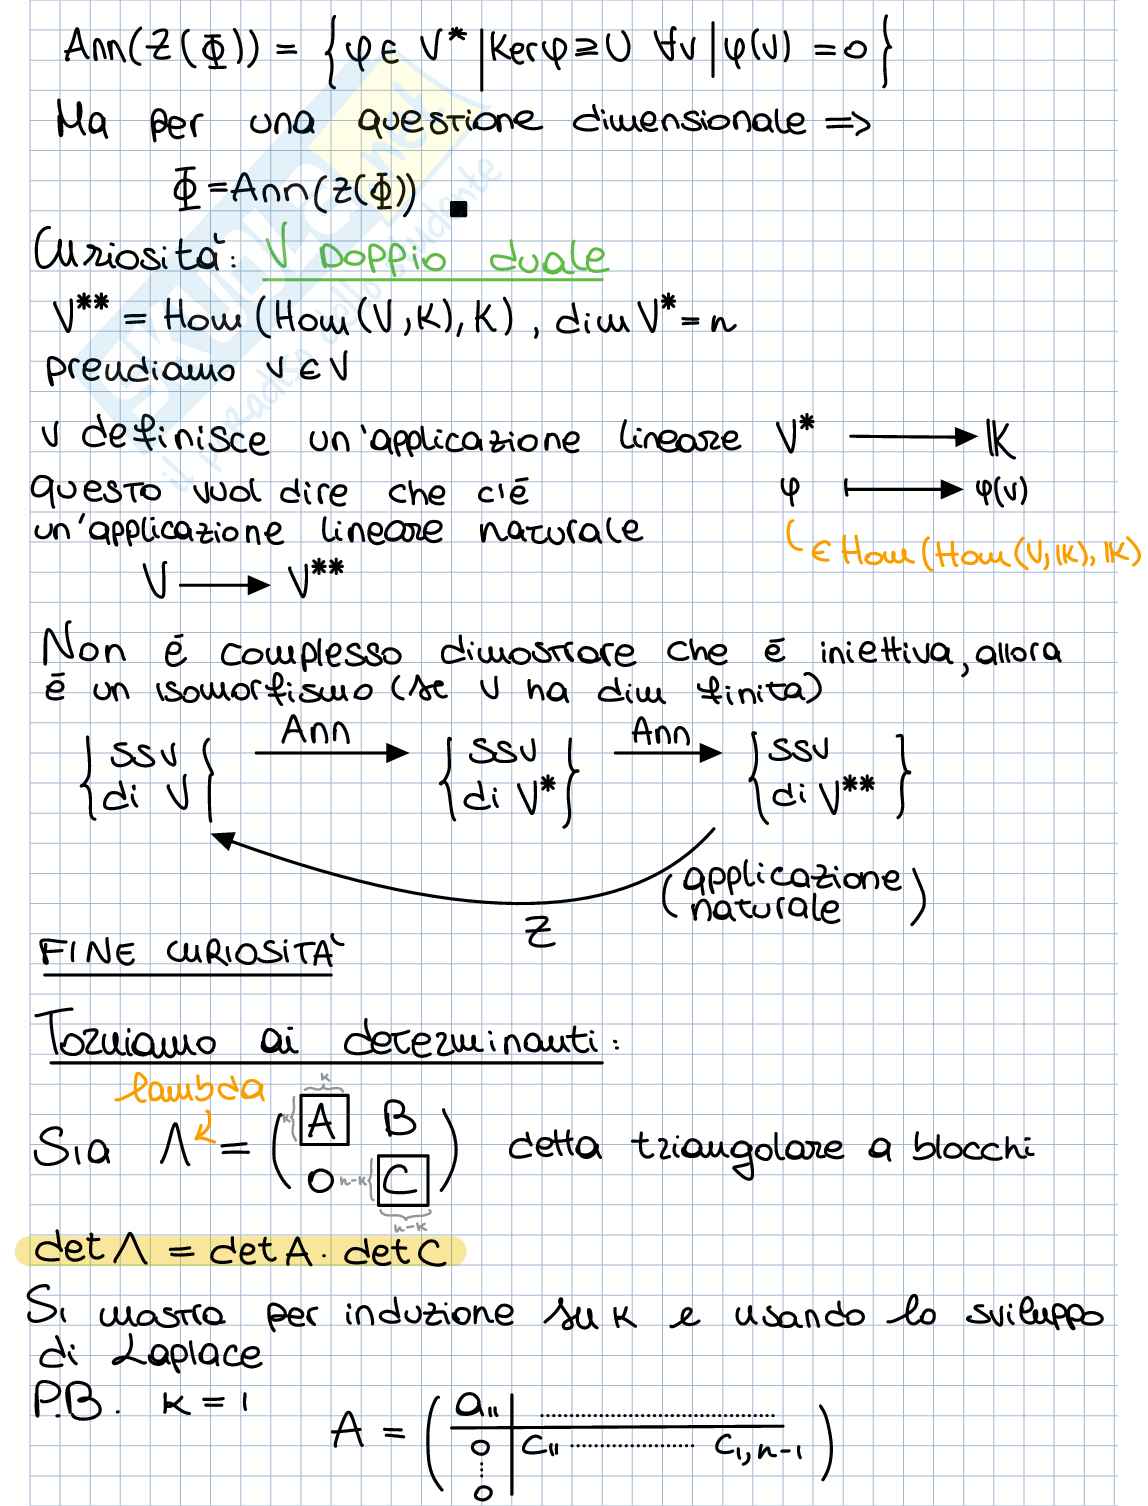 Ann(Z(Φ)) = {φ ∈ V* | Ker φ ⊇ U ∀v | φ(v) = 0}
Ma per una questione dimensionale =>
Φ = Ann(Z(Φ)) ■
Curiosità: V Doppio duale
V** = Hom(Hom(V,K),K), dim V* = n
prendiamo v ∈ V
v definisce un'applicazione lineare V* ⟶ 𝕂
questo vuol dire che c'é φ ⟼ φ(v)
un'applicazione lineare naturale
∈ Hom(Hom(V,𝕂),𝕂)
V ⟶ V**
Non é complesso dimostrare che é iniettiva, allora
é un isomorfismo (se V ha dim finita)
{SSV di V} Ann ⟶ {SSV di V*} Ann ⟶ {SSV di V**}
(applicazione naturale)
Z
FINE CURIOSITÀ
Torniamo ai determinanti:
lambda
k
Sia Λ = (k A B
0 n-k C) detta triangolare a blocchi
n-k
det Λ = det A · det C
Si mostra per induzione su k e usando lo sviluppo
di Laplace
P.B. k = 1
A = (a₁₁ | ..........
0 | C₁₁ .......... C₁,ₙ₋₁)
⋮
0